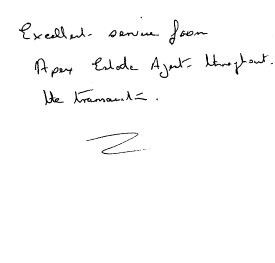 Excellent service from
Apex Estate Agent throughout
the transaction.